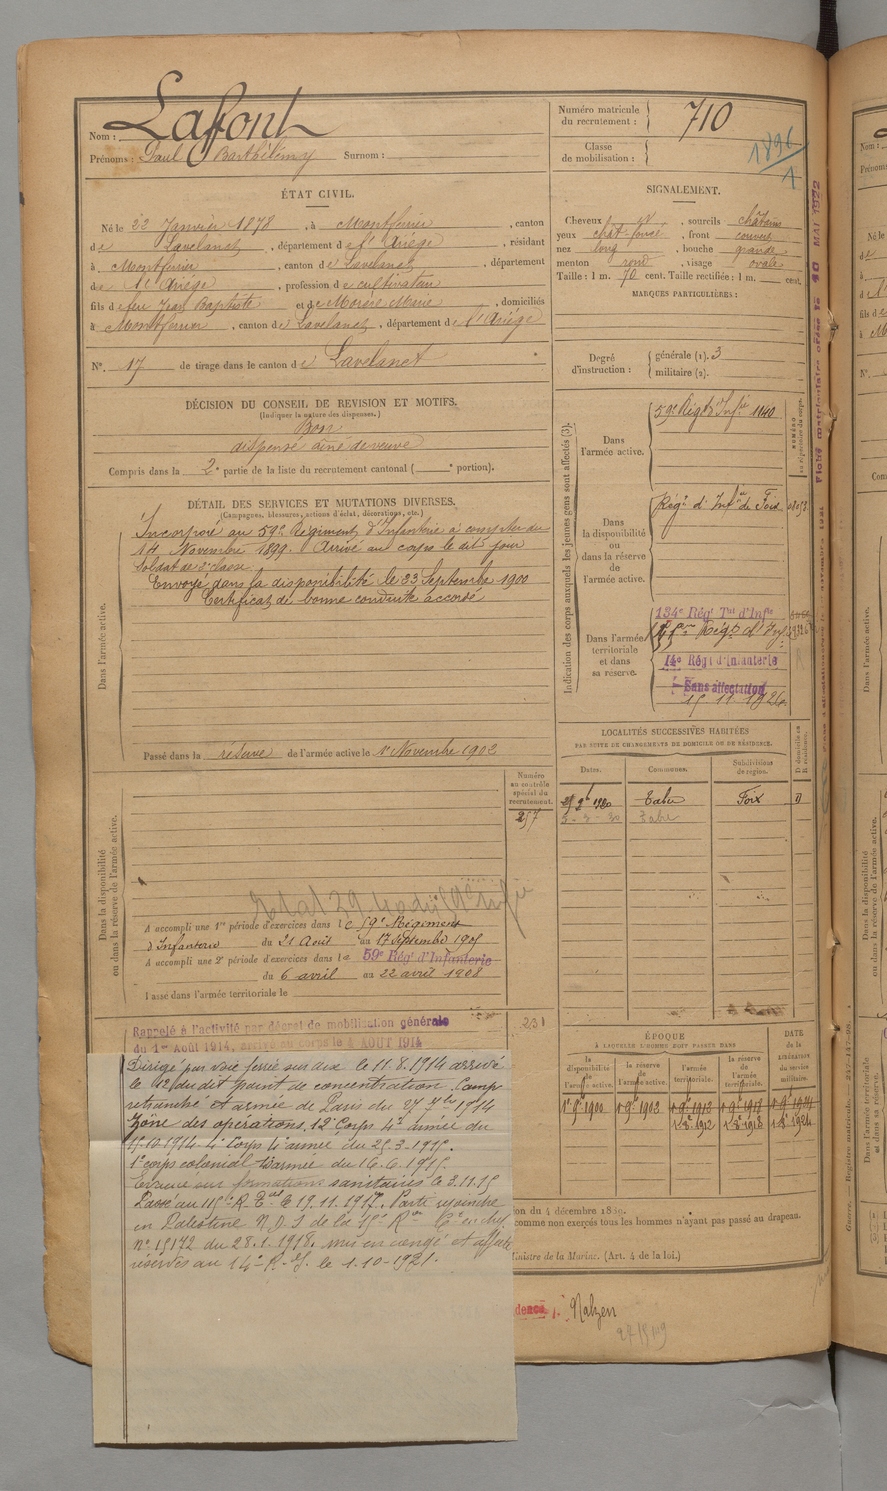 Nom : Lafont
Prénoms : Paul Barthélémy Surnom :
Numéro matricule du recrutement : 710
Classe de mobilisation :
1896
ÉTAT CIVIL.
Né le 22 Janvier 1878, à Montferrier, canton
de Lavelanet, département de l'Ariége, résidant
à Montferrier, canton de Lavelanet, département
de l'Ariége, profession de cultivateur
fils de feu Jean Baptiste et de Morère Marie, domiciliés
à Montferrier, canton de Lavelanet, département de l'Ariége
N°. 17 de tirage dans le canton de Lavelanet
SIGNALEMENT.
Cheveux, sourcils châtains
yeux chât-foncé, front couvert
nez long, bouche grande
menton rond, visage ovale
Taille : 1 m. 70 cent. Taille rectifiée : 1 m. cent.
MARQUES PARTICULIÈRES :
Degré d'instruction : générale (1). 3
militaire (2).
DÉCISION DU CONSEIL DE REVISION ET MOTIFS.
(Indiquer la nature des dispenses.)
Bon
dispensé aîné de veuve
Compris dans la 2e partie de la liste du recrutement cantonal ( e portion).
DÉTAIL DES SERVICES ET MUTATIONS DIVERSES.
(Campagnes, blessures, actions d'éclat, décorations, etc.)
Dans l'armée active.
Incorporé au 59e Régiment d'Infanterie à compter du
14 Novembre 1899. Arrivé au corps le dit jour
Soldat de 2e classe
Envoyé dans la disponibilité le 23 Septembre 1900
Certificat de bonne conduite accordé
Passé dans la réserve de l'armée active le 1er Novembre 1902
Indication des corps auxquels les jeunes gens sont affectés (3).
NUMÉRO au répertoire du corps.
Dans l'armée active.
59e Régt d'Infie 1140
Dans la disponibilité ou dans la réserve de l'armée active.
Régt d'Infie de Foix
Dans l'armée territoriale et dans sa réserve.
134e Régt Tal d'Infie
14e Régt d'Infanterie
Sans affectation
LOCALITÉS SUCCESSIVES HABITÉES
PAR SUITE DE CHANGEMENTS DE DOMICILE OU DE RÉSIDENCE.
Dates. Communes. Subdivisions de région. D domicile ou R résidence.
Tabre Foix D
Tabre
Dans la disponibilité ou dans la réserve de l'armée active.
Numéro au contrôle spécial du recrutement.
257
A accompli une 1re période d'exercices dans le 59e Régiment
d'Infanterie du 21 Août au 17 Septembre 1905
A accompli une 2e période d'exercices dans le 59e Régt d'Infanterie
du 6 avril au 22 avril 1908
Passé dans l'armée territoriale le
231
Rappelé à l'activité par décret de mobilisation générale
du 1er Août 1914, arrivé au corps le 4 AOUT 1914
Dirigé par voie ferrée sur le 11.8.1914 arrivé
le 12 du dit point de concentration. Camp
retranché et armée de Paris du 27 7bre 1914
Zone des opérations, 12e Corps 4e armée du
15.10.1914. 4e Corps 4e armée du 25.3.1915.
1er corps colonial armée du 16.6.1915.
Evacué sur formations sanitaires le 3.11.15
Passé au 115e R. Tal le 19.11.1917. Parti rejoindre
en Palestine N.D.S de la 15e Ron
n° 15172 du 28.1.1918. mis en congé et affecté
réserves au 14e R.I. le 1.10-1921.
ÉPOQUE
À LAQUELLE L'HOMME DOIT PASSER DANS
la disponibilité de l'armée active. la réserve de l'armée active. l'armée territoriale. la réserve de l'armée territoriale. DATE de la LIBÉRATION du service militaire.
1er 9bre 1900 1er 9bre 1902
on du 4 décembre 1889.
comme non exercés tous les hommes n'ayant pas passé au drapeau.
Ministre de la Marine. (Art. 4 de la loi.)
Nalzen